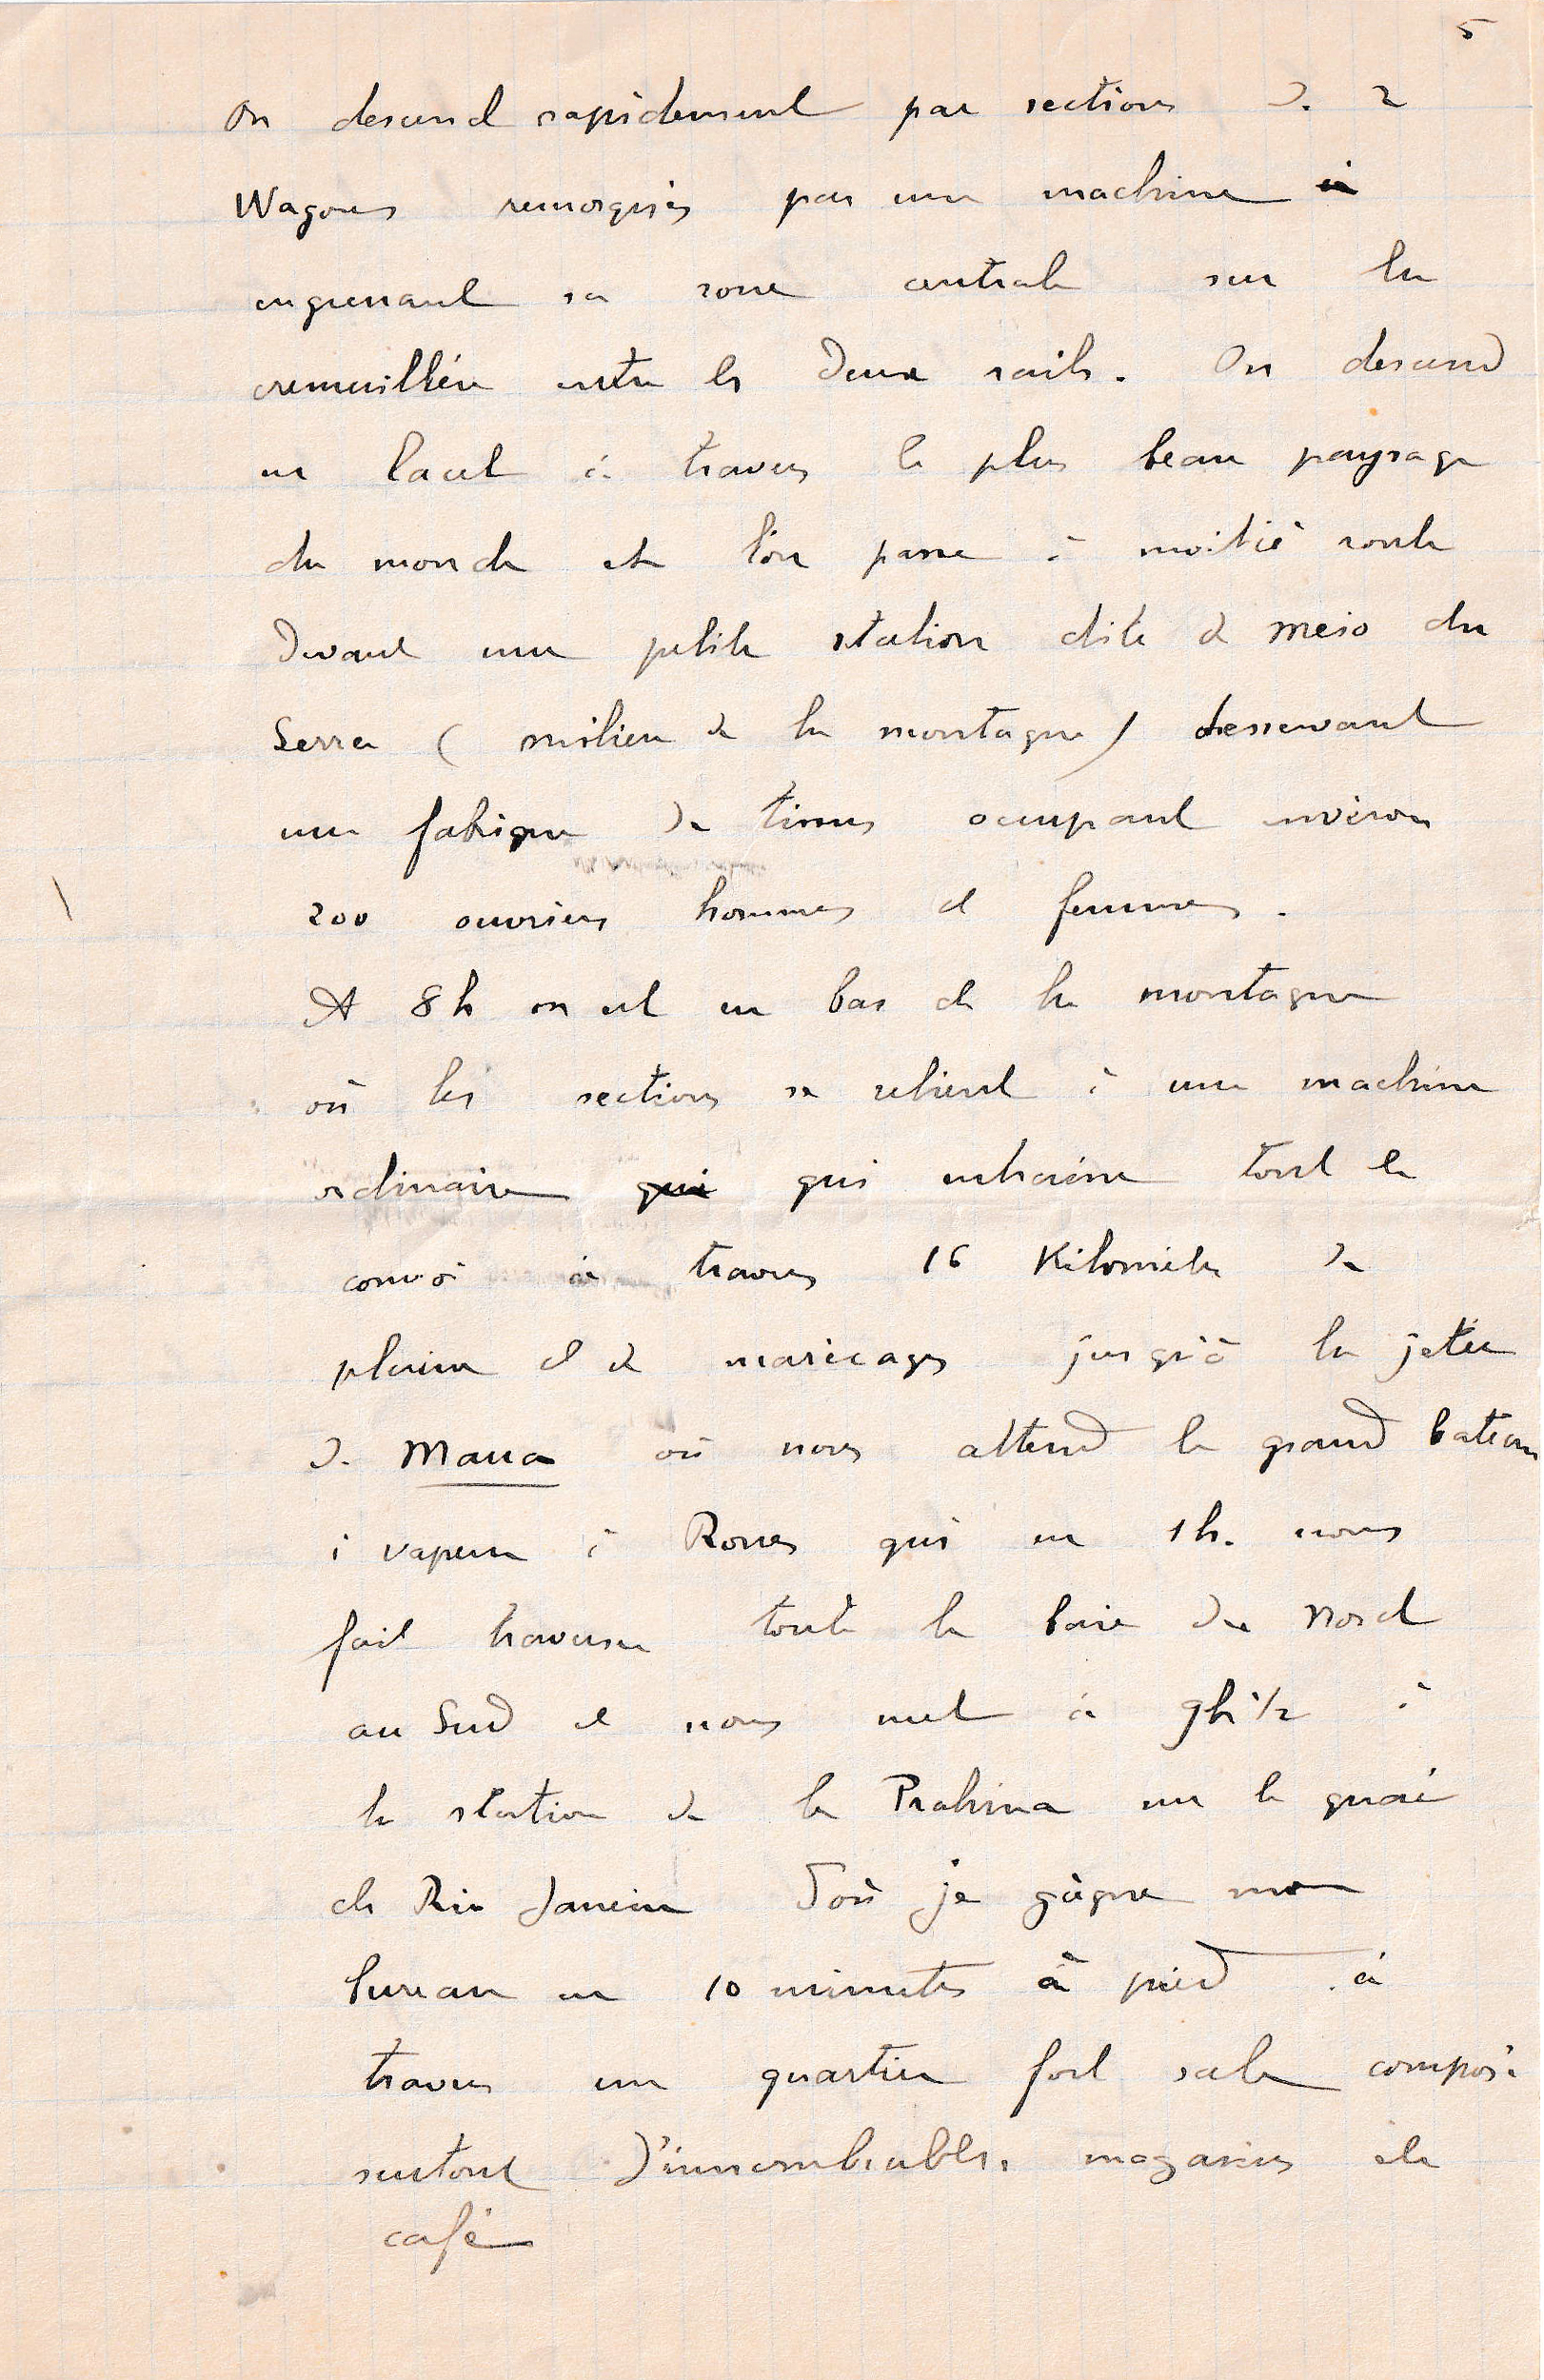 5
On descend rapidement par sections de 2
Wagons remorqués par une machine
engrenant sa roue centrale sur la
cremaillère entre les deux rails. On descend
en lacet à travers le plus beau paysage
du monde et l'on passe à moitié route
devant une petite station dite de meio da
Serra (milieu de la montagne) desservant
une fabrique de tissus occupant environ
200 ouvriers hommes et femmes.
A 8h on est en bas de la montagne
où les sections se relient à une machine
ordinaire qui qui entraine tout le
convoi à travers 16 Kilomètres de
plaine et de marécages jusqu'à la jetée
de Maua où nous attend le grand bateau
à vapeur à Roues qui en 1h. nous
fait traverser toute la baie du Nord
au Sud et nous met à 9h 1/2 à
la station de la Prahina sur le quai
de Rio Janeiro d'où je gagne mon
bureau en 10 minutes à pied à
travers un quartier fort sale composé
surtout d'innombrables magasins de
café